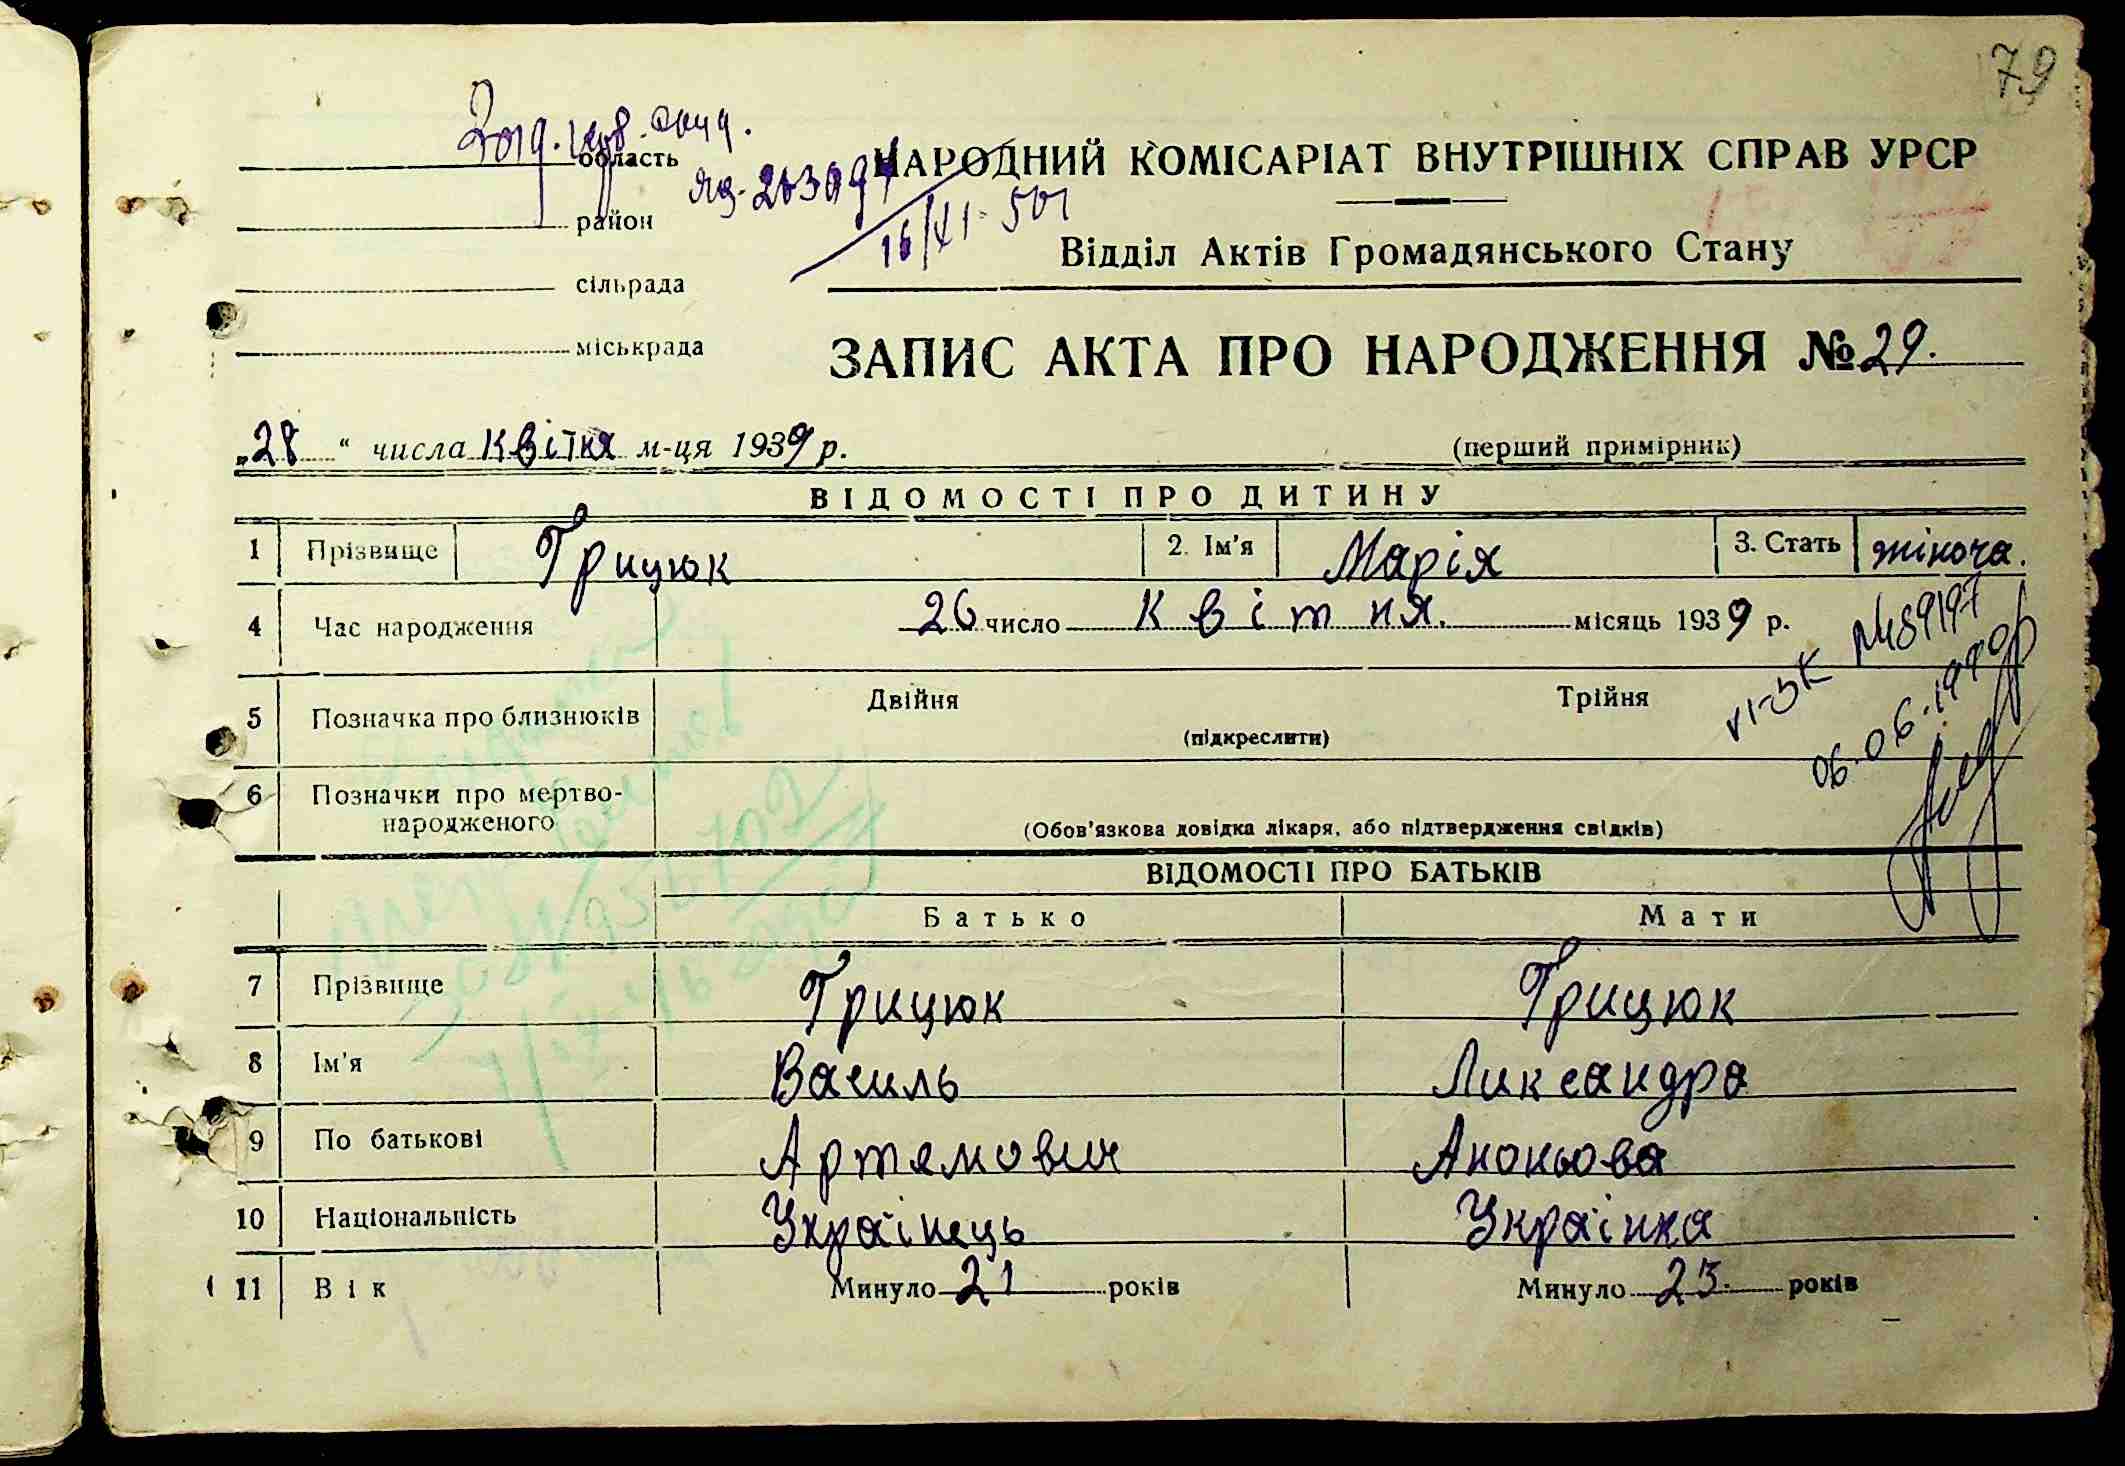 79
область
район
сільрада
міськрада
НАРОДНИЙ КОМІСАРІАТ ВНУТРІШНІХ СПРАВ УРСР
Відділ Актів Громадянського Стану
ЗАПИС АКТА ПРО НАРОДЖЕННЯ № 29.
„28“ числа квітня м-ця 1939 р. (перший примірник)
ВІДОМОСТІ ПРО ДИТИНУ
1 Прізвище Грицюк 2. Ім'я Марія 3. Стать жіноча.
4 Час народження 26 число квітня. місяць 1939 р.
5 Позначка про близнюків Двійня Трійня
(підкреслити)
6 Позначки про мертво-
народженого (Обов'язкова довідка лікаря, або підтвердження свідків)
ВІДОМОСТІ ПРО БАТЬКІВ
Батько Мати
7 Прізвище Грицюк Грицюк
8 Ім'я Василь Лександра
9 По батькові Артемович
10 Національність Українець Українка
11 Вік Минуло 21 років Минуло 23. років